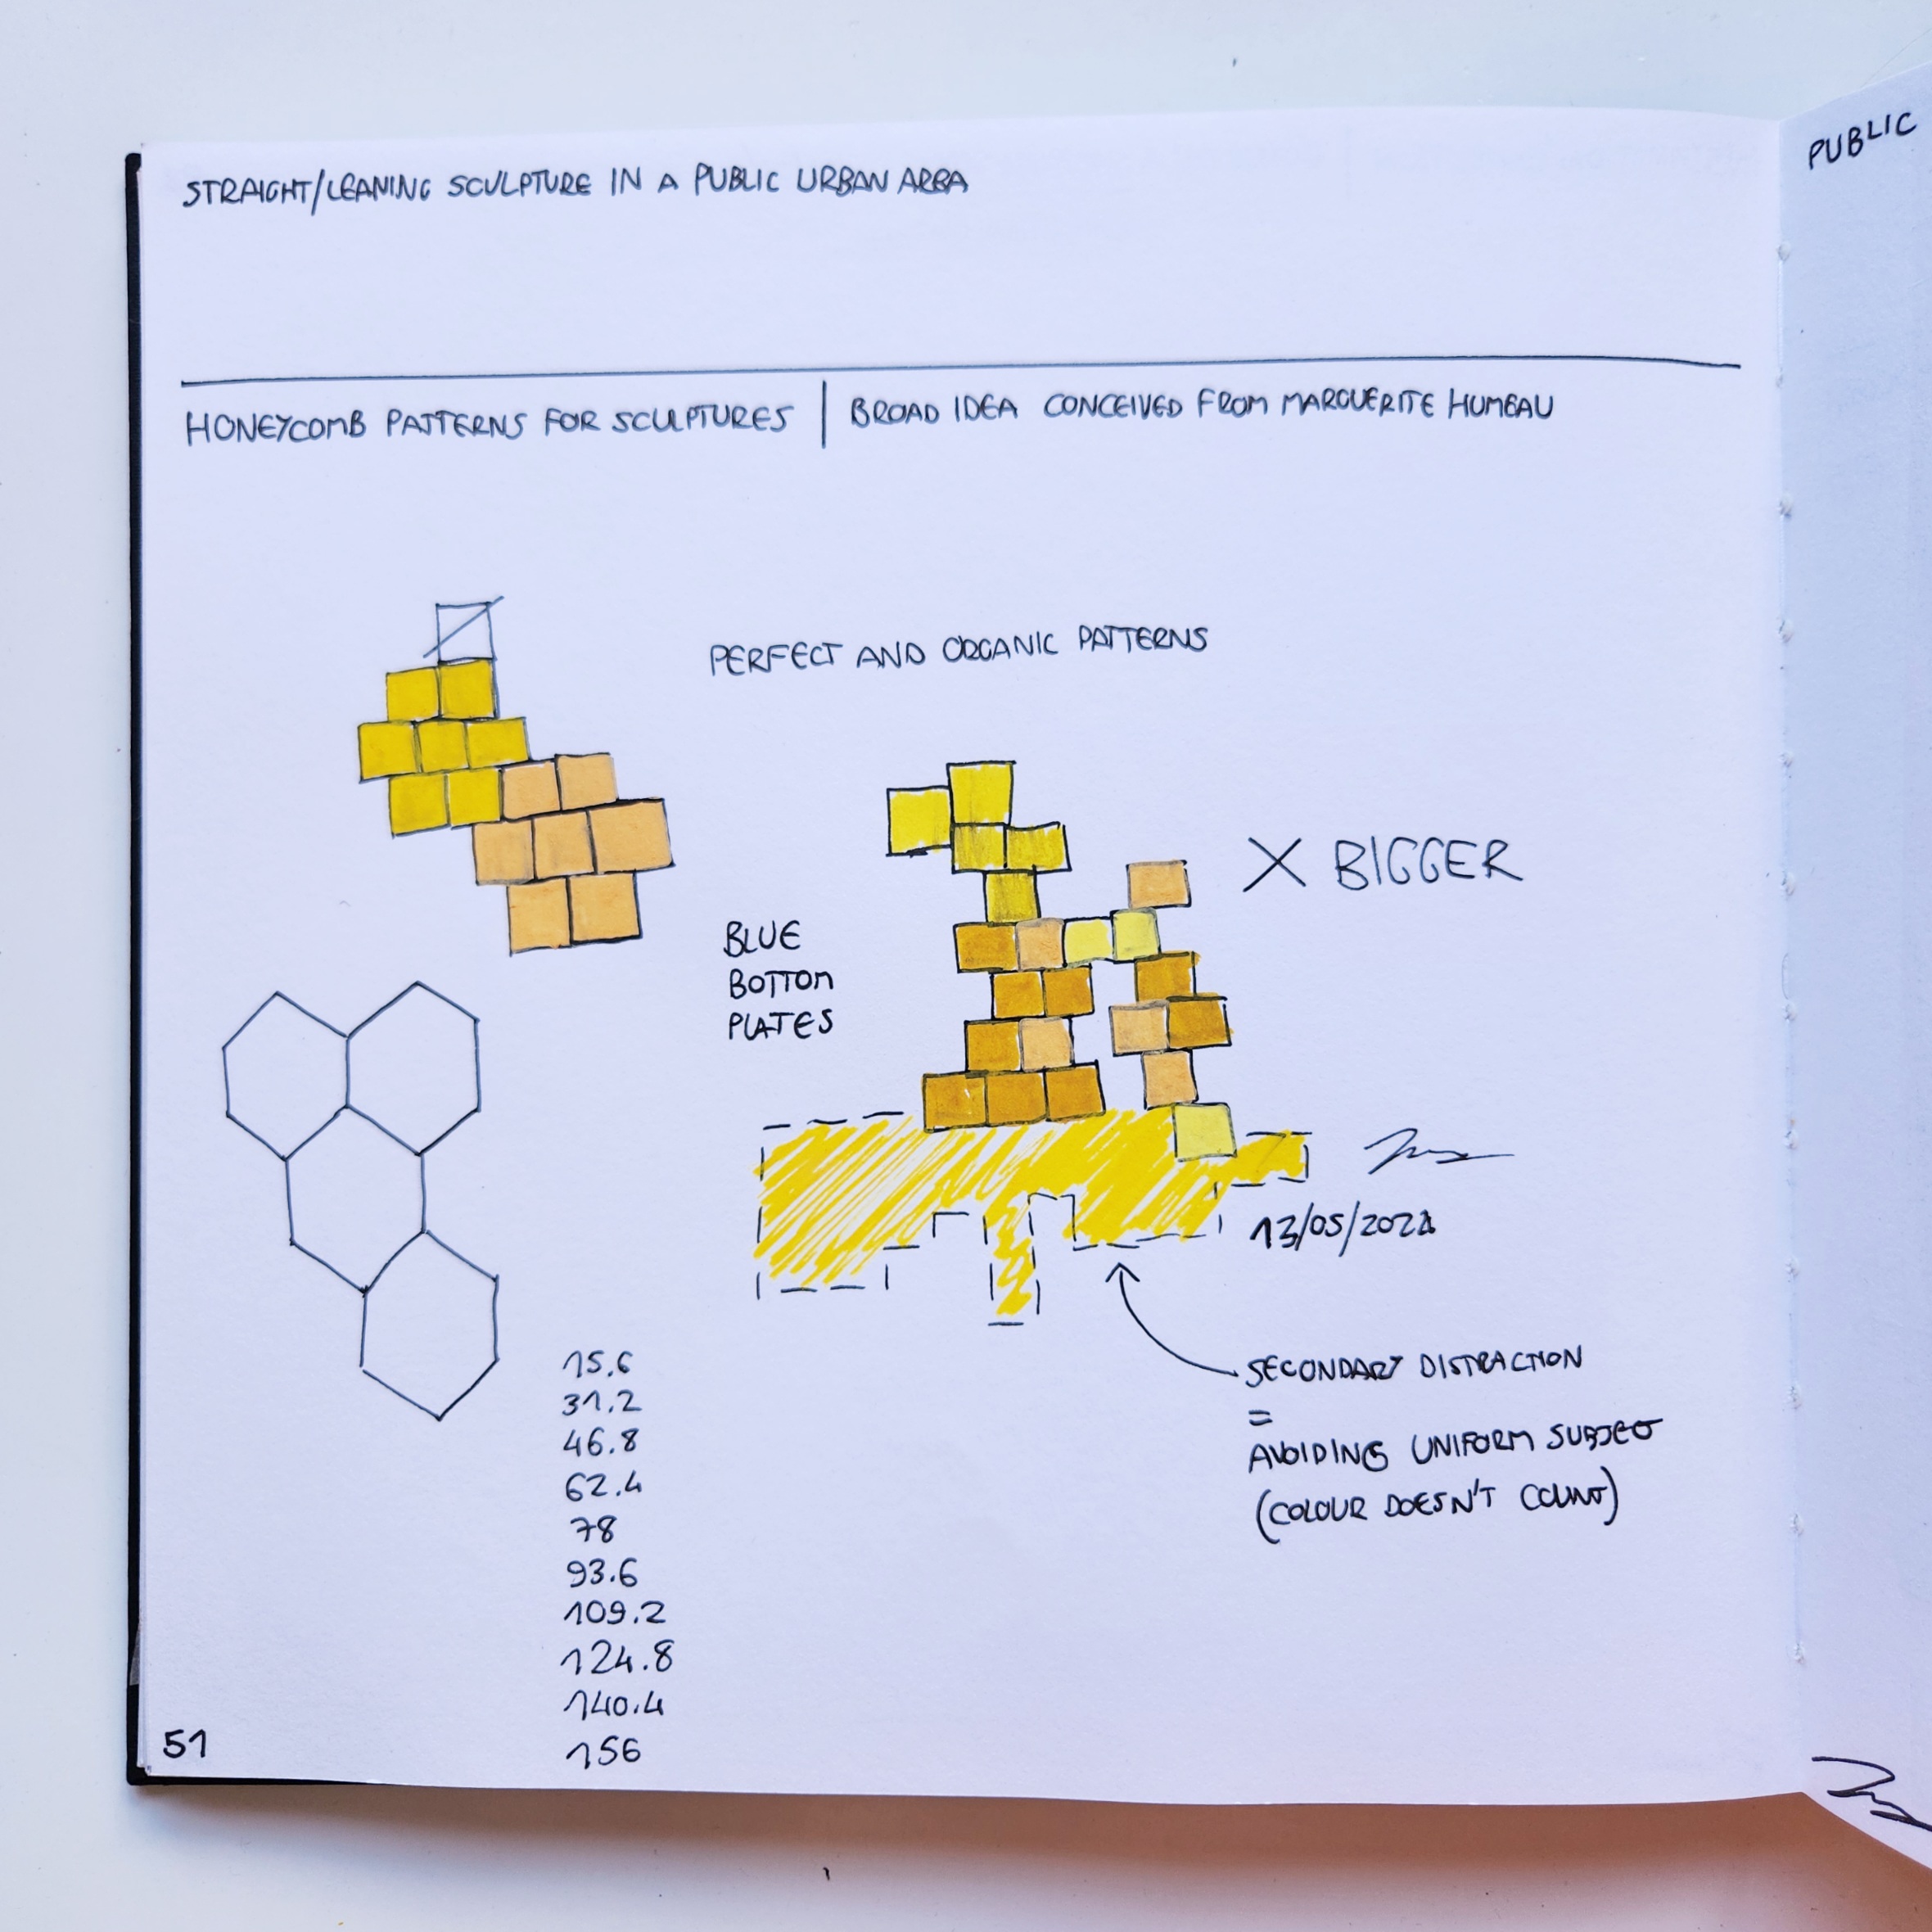 STRAIGHT/LEANING SCULPTURE IN A PUBLIC URBAN AREA
HONEYCOMB PATTERNS FOR SCULPTURES | BROAD IDEA CONCEIVED FROM MARGUERITE HUMEAU
PERFECT AND ORGANIC PATTERNS
X BIGGER
BLUE
BOTTOM
PLATES
13/05/2022
SECONDARY DISTRACTION
=
AVOIDING UNIFORM SUBJECT
(COLOUR DOESN'T COUNT)
15.6
31.2
46.8
62.4
78
93.6
109.2
124.8
140.4
156
51
PUBLIC